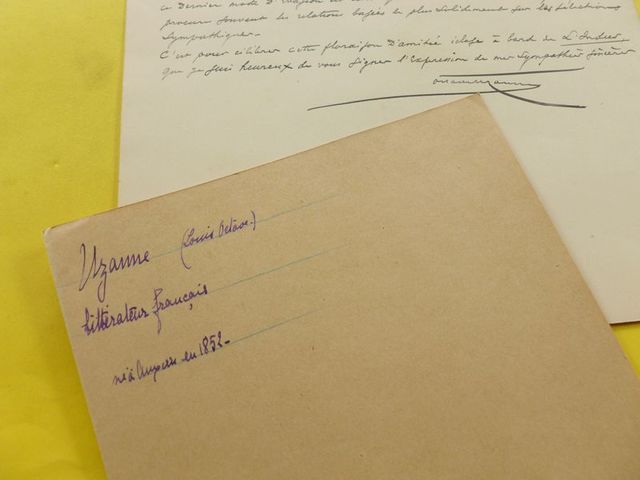 ce dernier mode d'
procure souvent des relations basées le plus solidement sur les sélections
sympathiques.
C'est pour célébrer cette floraison d'amitié éclose à bord de L'Indus
que je suis heureux de vous signer l'Expression de mes sympathies sincères
Octave Uzanne
Uzanne (Louis Octave.)
littérateur français
né à Auxerre en 1852-